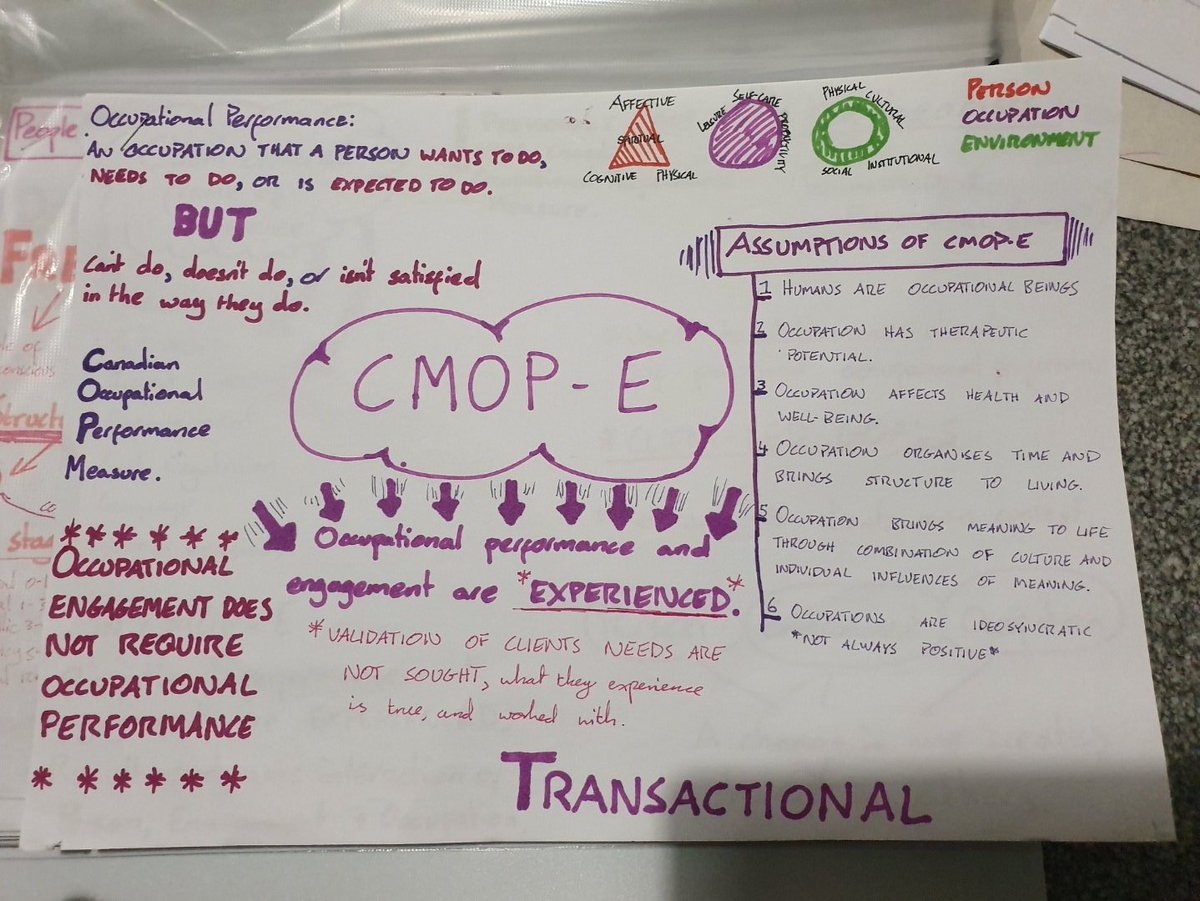 Occupational Performance:
AN OCCUPATION THAT A PERSON WANTS TO DO,
NEEDS TO DO, OR IS EXPECTED TO DO.
BUT
Can't do, doesn't do, or isn't satisfied
in the way they do.
Canadian
Occupational
Performance
Measure.
* * * * * *
OCCUPATIONAL
ENGAGEMENT DOES
NOT REQUIRE
OCCUPATIONAL
PERFORMANCE
* * * * * *
AFFECTIVE
SPIRITUAL
COGNITIVE PHYSICAL
SELF-CARE
LEISURE
PRODUCTIVITY
PHYSICAL
CULTURAL
SOCIAL
INSTITUTIONAL
PERSON
OCCUPATION
ENVIRONMENT
CMOP-E
Occupational performance and
engagement are *EXPERIENCED.*
*VALIDATION OF CLIENTS NEEDS ARE
NOT SOUGHT, what they experience
is true, and worked with.
ASSUMPTIONS OF CMOP-E
1 HUMANS ARE OCCUPATIONAL BEINGS
2 OCCUPATION HAS THERAPEUTIC
POTENTIAL.
3 OCCUPATION AFFECTS HEALTH AND
WELL-BEING.
4 OCCUPATION ORGANISES TIME AND
BRINGS STRUCTURE TO LIVING.
5 OCCUPATION BRINGS MEANING TO LIFE
THROUGH COMBINATION OF CULTURE AND
INDIVIDUAL INFLUENCES OF MEANING.
6 OCCUPATIONS ARE IDEOSYNCRATIC
*NOT ALWAYS POSITIVE*
TRANSACTIONAL
People